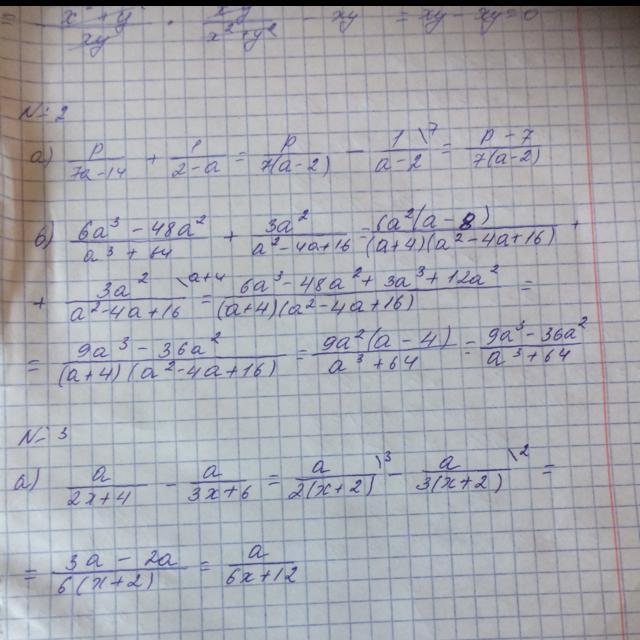 = (x² + y²)/(xy) · (xy)/(x² + y²) - xy = xy - xy = 0
№ 2
а) p/(7a-14) + 1/(2-a) = p/(7(a-2)) - 1\7/(a-2) = (p-7)/(7(a-2))
в) (6a³ - 48a²)/(a³ + 64) + 3a²/(a²-4a+16) = (6a²(a-8))/((a+4)(a²-4a+16)) +
+ 3a²\a+4/(a²-4a+16) = (6a³-48a²+3a³+12a²)/((a+4)(a²-4a+16)) =
= (9a³-36a²)/((a+4)(a²-4a+16)) = (9a²(a-4))/(a³+64) = (9a³-36a²)/(a³+64)
№ 3
а) a/(2x+4) - a/(3x+6) = a\3/(2(x+2)) - a\2/(3(x+2)) =
= (3a-2a)/(6(x+2)) = a/(6x+12)